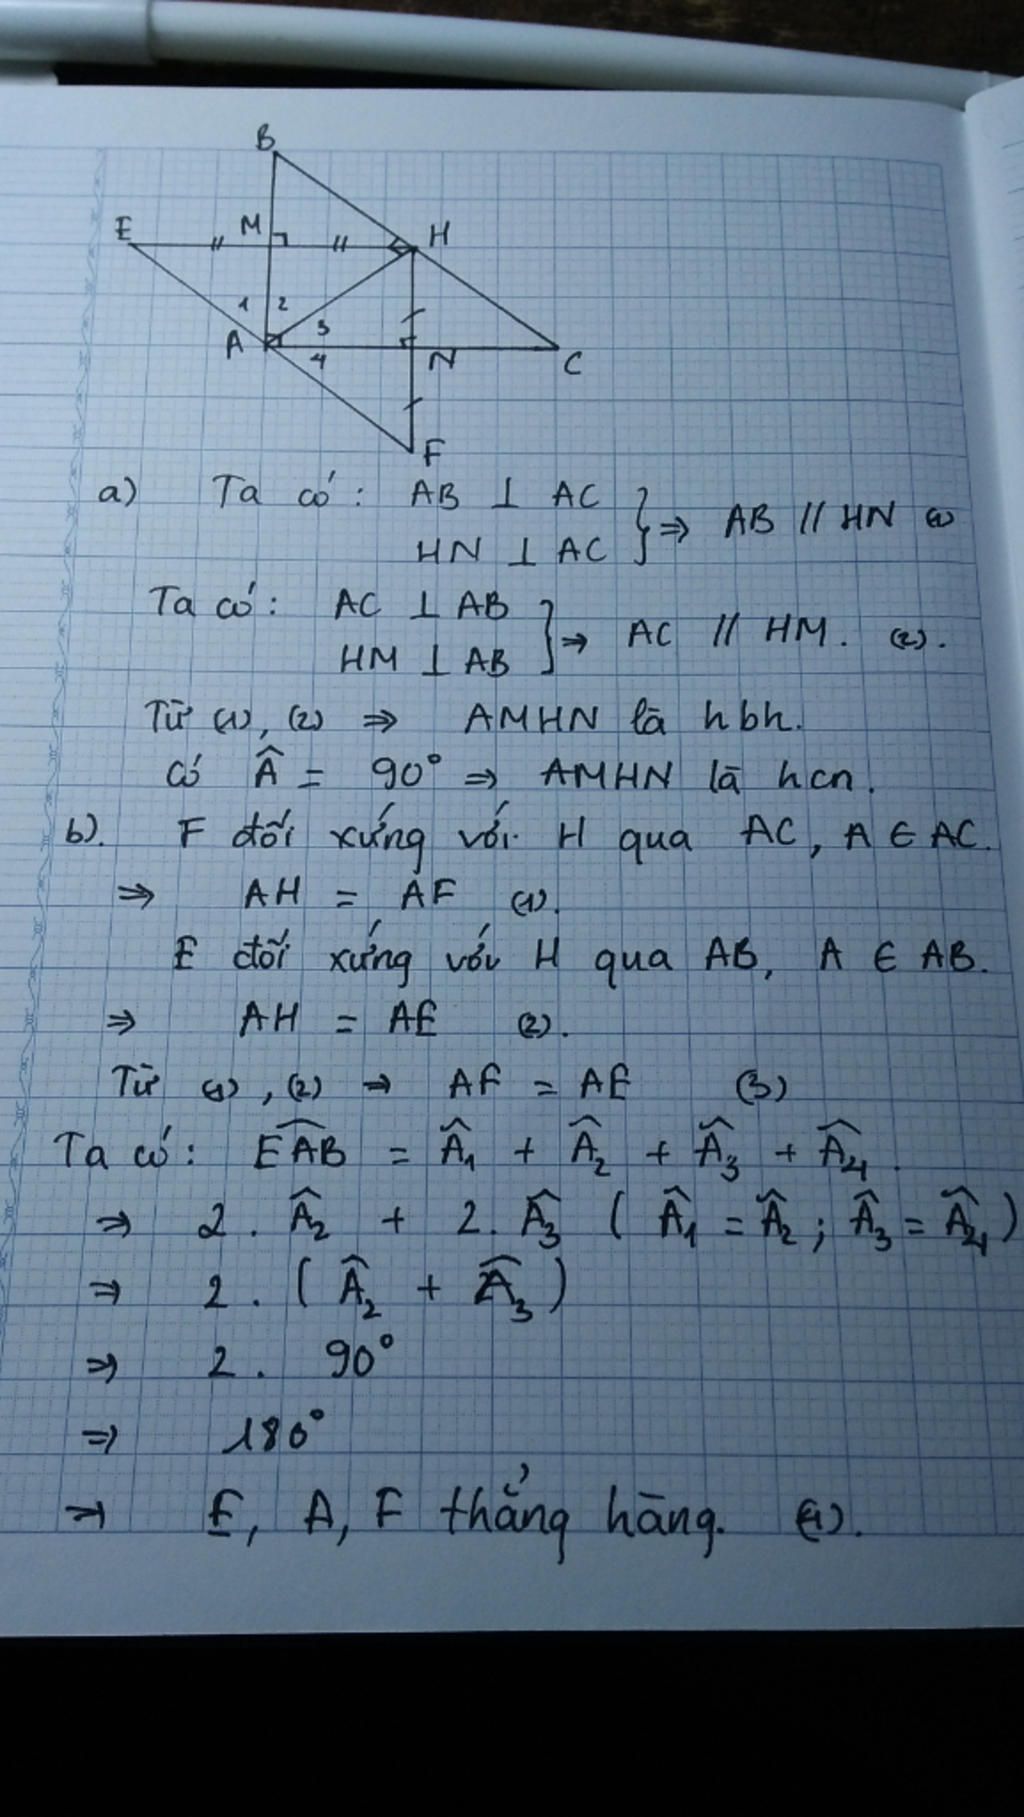 B
E M H
1 2
A 3
4 N C
F
a) Ta có: AB ⊥ AC
HN ⊥ AC } ⇒ AB // HN (1)
Ta có: AC ⊥ AB
HM ⊥ AB } ⇒ AC // HM. (2).
Từ (1), (2) ⇒ AMHN là hbh.
Có Â = 90° ⇒ AMHN là hcn.
b). F đối xứng với H qua AC, A ∈ AC.
⇒ AH = AF (1).
E đối xứng với H qua AB, A ∈ AB.
⇒ AH = AE (2).
Từ (1), (2) ⇒ AF = AE (3)
Ta có: EÂB = Â₁ + Â₂ + Â₃ + Â₄.
⇒ 2. Â₂ + 2. Â₃ ( Â₁ = Â₂ ; Â₃ = Â₄ )
⇒ 2. ( Â₂ + Â₃ )
⇒ 2. 90°
⇒ 180°
⇒ E, A, F thẳng hàng.